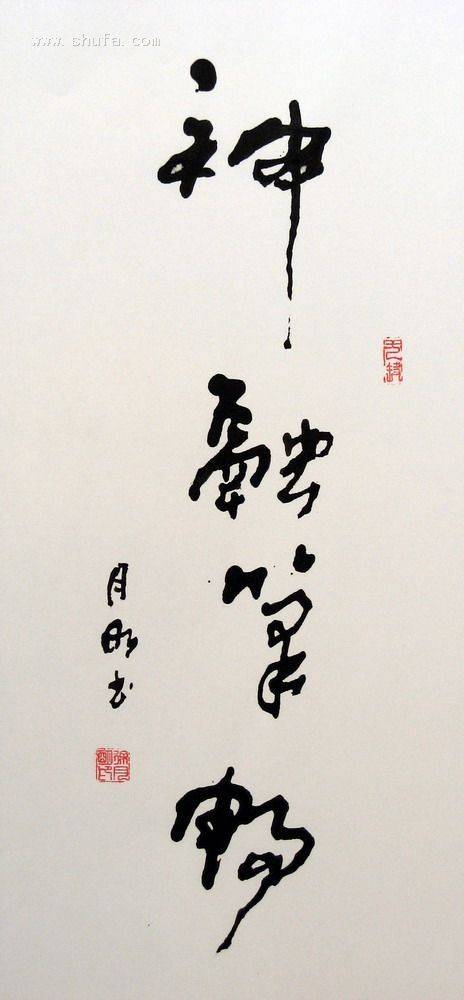 www.shufa.com
神融筆暢
月明书